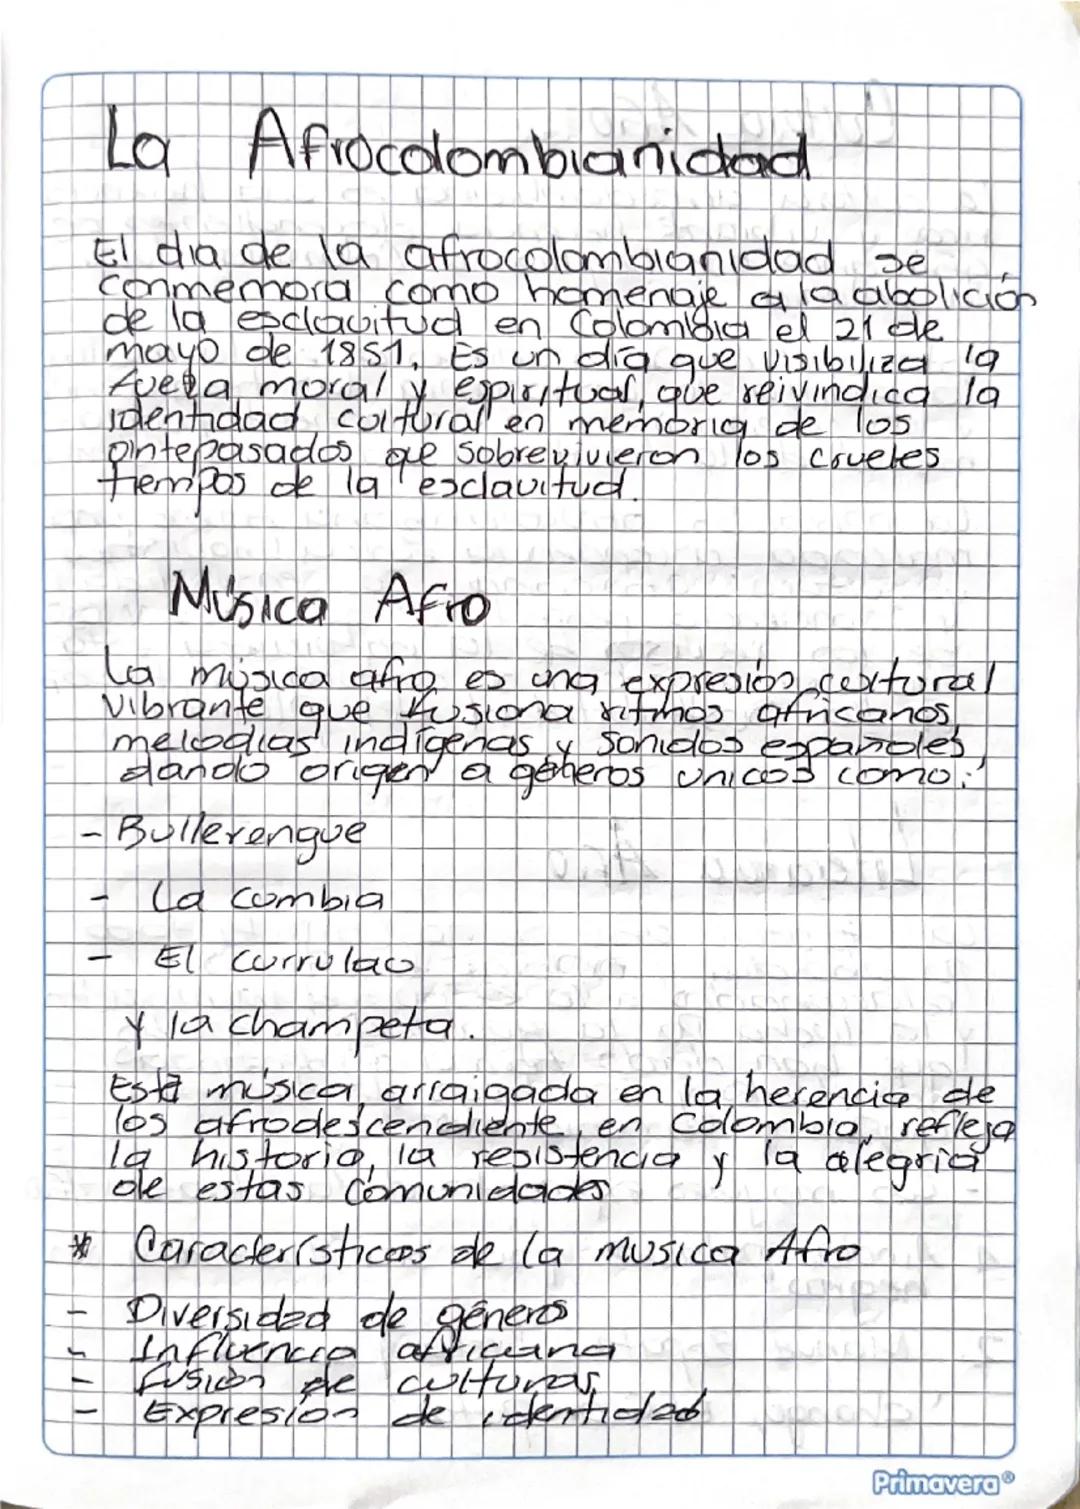 La Afrocolombianidad
El dia de la afrocolombianidad se
conmemora como homenaje a la abolición
de la esclavitud en Colombia el 21 de
mayo de 1851. Es un día que visibiliza la
fuerza moral y espiritual, que reivindica la
identidad cultural en memoria de los
antepasados que sobrevivieron los crueles
tiempos de la esclavitud.
Música Afro
La música afro es una expresión cultural
vibrante que fusiona ritmos africanos,
melodías indígenas y sonidos españoles,
dando origen a géneros unicos como:
- Bullerengue
- La cumbia
- El currulao
y la champeta.
Esta música, arraigada en la herencia de
los afrodescendiente en Colombia, refleja
la historia, la resistencia y la alegria
de estas comunidades
* Características de la musica Afro
- Diversidad de géneros
- Influencia africana
- fusión de culturas
- Expresión de identidad
Primavera®